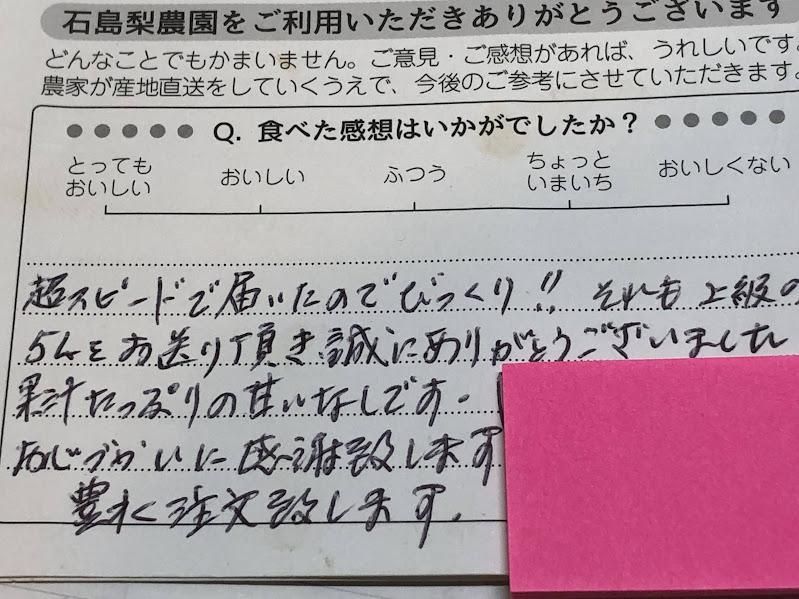 石島梨農園をご利用いただきありがとうございます
どんなことでもかまいません。ご意見・ご感想があれば、うれしいです。
農家が産地直送をしていくうえで、今後のご参考にさせていただきます。
Q. 食べた感想はいかがでしたか?
とっても おいしい ふつう ちょっと おいしくない
おいしい いまいち
超スピードで届いたのでびっくり!! それも上級の
5Lをお送り頂き誠にありがとうございました
果汁たっぷりの甘いなしです.
に感謝致します
注文致します.